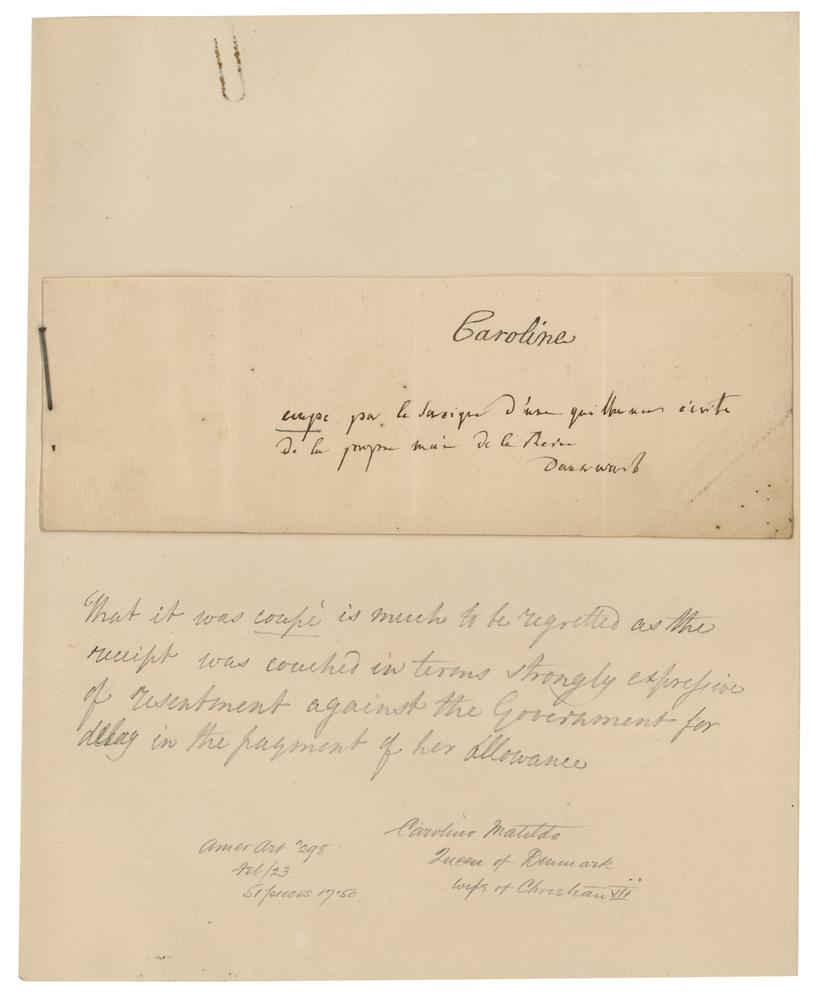 Caroline
coupé par le d'une quittance écrite
de la propre main de la Reine
Danemark
That it was coupé is much to be regretted as the
receipt was couched in terms strongly expressive
of resentment against the Government for
delay in the payment of her allowance
Amer Art #298
Feb/23.
51 pieces 17.50
Caroline Matilda
Queen of Denmark
wife of Christian VII